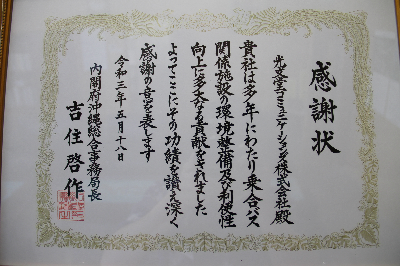 感謝状
光文堂コミュニケーションズ株式会社殿
貴社は多年にわたり乗合バス
関係施設の環境整備及び利便性
向上に多大なる貢献をされました
よってここにその功績を讃え深く
感謝の意を表します
令和三年五月十八日
内閣府沖縄総合事務局長
吉住啓作